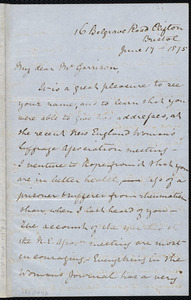 16 Belgrave Road Clifton
Bristol
June 17 - 1875
My dear Mr Garrison,
It is a great pleasure to see
your name, and to learn that you
were able to give two addresses, at
the recent New England Woman's
Suffrage Association meeting -
I venture to hope from it that you
are in better health, less of a
prisoner & sufferer from rheumatism
than when I last heard of you -
The accounts of the speeches at
the N.E. Assn - meeting are most
encouraging - Everything in the
Woman's Journal has a very